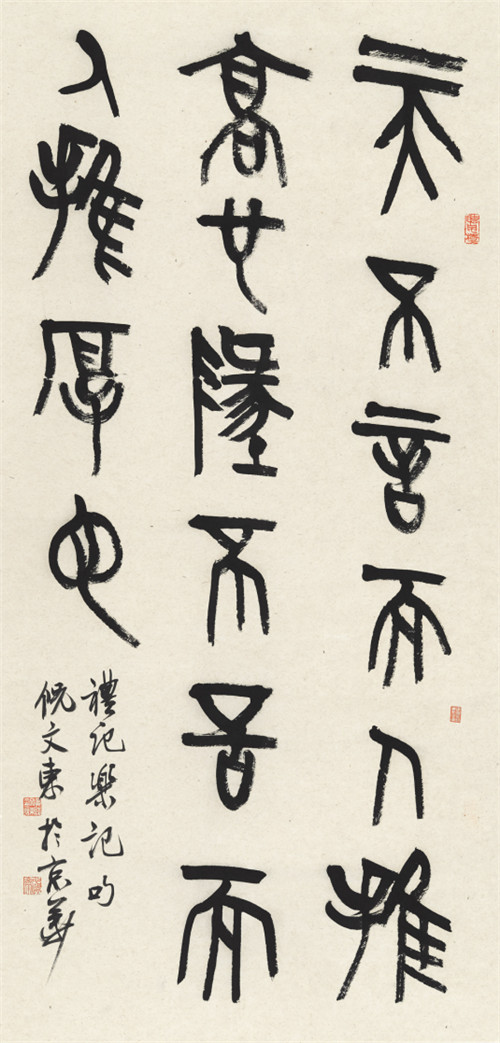 天不言而人推
高也墬不言而
人推厚也
禮記樂記句
倪文東於京華